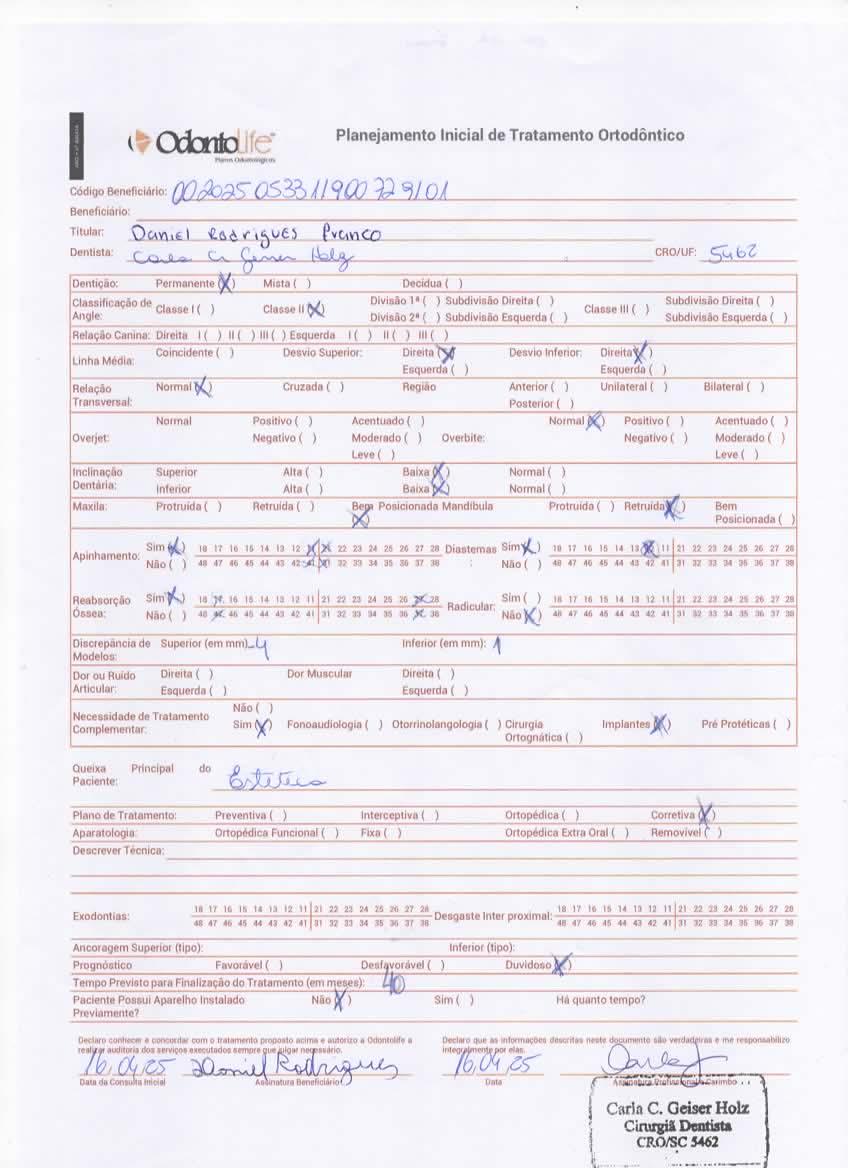 OdontoLife
Planos Odontológicos
Planejamento Inicial de Tratamento Ortodôntico
Código Beneficiário: 00202505331190072 9/01
Beneficiário:
Titular: Daniel Rodrigues Franco
Dentista: Carla C. Geiser Holz CRO/UF: 5462
Dentição: Permanente (X) Mista ( ) Decídua ( )
Classificação de Angle: Classe I ( ) Classe II (X) Divisão 1ª ( ) Subdivisão Direita ( ) Classe III ( ) Subdivisão Direita ( )
Divisão 2ª ( ) Subdivisão Esquerda ( ) Subdivisão Esquerda ( )
Relação Canina: Direita I ( ) II ( ) III ( ) Esquerda I ( ) II ( ) III ( )
Linha Média: Coincidente ( ) Desvio Superior: Direita (X) Desvio Inferior: Direita (X)
Esquerda ( ) Esquerda ( )
Relação Transversal: Normal (X) Cruzada ( ) Região Anterior ( ) Unilateral ( ) Bilateral ( )
Posterior ( )
Overjet: Normal Positivo ( ) Acentuado ( ) Overbite: Normal (X) Positivo ( ) Acentuado ( )
Negativo ( ) Moderado ( ) Negativo ( ) Moderado ( )
Leve ( ) Leve ( )
Inclinação Dentária: Superior Alta ( ) Baixa (X) Normal ( )
Inferior Alta ( ) Baixa (X) Normal ( )
Maxila: Protruída ( ) Retruída ( ) Bem Posicionada (X) Mandíbula Protruída ( ) Retruída (X) Bem Posicionada ( )
Apinhamento: Sim (X) 18 17 16 15 14 13 12 11 21 22 23 24 25 26 27 28 Diastemas: Sim (X) 18 17 16 15 14 13 12 11 21 22 23 24 25 26 27 28
Não ( ) 48 47 46 45 44 43 42 41 31 32 33 34 35 36 37 38 Não ( ) 48 47 46 45 44 43 42 41 31 32 33 34 35 36 37 38
Reabsorção Óssea: Sim (X) 18 17 16 15 14 13 12 11 21 22 23 24 25 26 27 28 Radicular: Sim ( ) 18 17 16 15 14 13 12 11 21 22 23 24 25 26 27 28
Não ( ) 48 47 46 45 44 43 42 41 31 32 33 34 35 36 37 38 Não (X) 48 47 46 45 44 43 42 41 31 32 33 34 35 36 37 38
Discrepância de Modelos: Superior (em mm) -4 Inferior (em mm): 1
Dor ou Ruído Articular: Direita ( ) Dor Muscular Direita ( )
Esquerda ( ) Esquerda ( )
Necessidade de Tratamento Complementar: Não ( )
Sim (X) Fonoaudiologia ( ) Otorrinolangologia ( ) Cirurgia Ortognática ( ) Implantes (X) Pré Protéticas ( )
Queixa Principal do Paciente: Estética
Plano de Tratamento: Preventiva ( ) Interceptiva ( ) Ortopédica ( ) Corretiva (X)
Aparatologia: Ortopédica Funcional ( ) Fixa ( ) Ortopédica Extra Oral ( ) Removível ( )
Descrever Técnica:
Exodontias: 18 17 16 15 14 13 12 11 21 22 23 24 25 26 27 28 Desgaste Inter proximal: 18 17 16 15 14 13 12 11 21 22 23 24 25 26 27 28
48 47 46 45 44 43 42 41 31 32 33 34 35 36 37 38 48 47 46 45 44 43 42 41 31 32 33 34 35 36 37 38
Ancoragem Superior (tipo): Inferior (tipo):
Prognóstico Favorável ( ) Desfavorável ( ) Duvidoso (X)
Tempo Previsto para Finalização do Tratamento (em meses): 40
Paciente Possui Aparelho Instalado Previamente? Não (X) Sim ( ) Há quanto tempo?
Declaro conhecer e concordar com o tratamento proposto acima e autorizo a Odontolife a realizar auditoria dos serviços executados sempre que julgar necessário.
Declaro que as informações descritas neste documento são verdadeiras e me responsabilizo integralmente por elas.
16.04.25 Daniel Rodrigues 16.04.25 Carla
Data da Consulta Inicial Assinatura Beneficiário Data Assinatura Profissional e Carimbo
Carla C. Geiser Holz
Cirurgiã Dentista
CRO/SC 5462